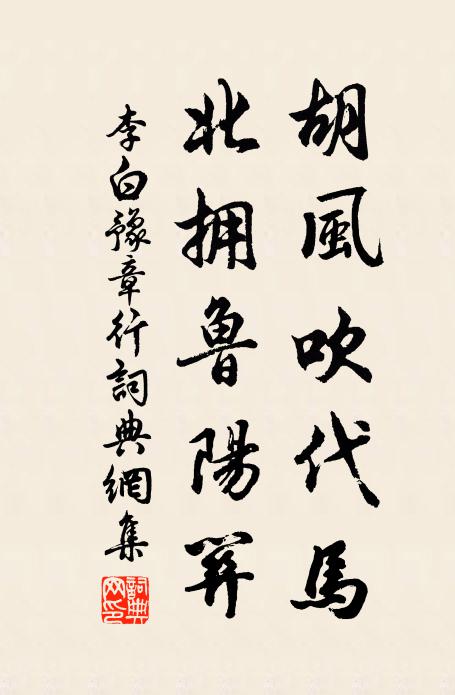 胡風吹代馬
北拥魯陽關
李白豫章行詞典網集
詞典网印